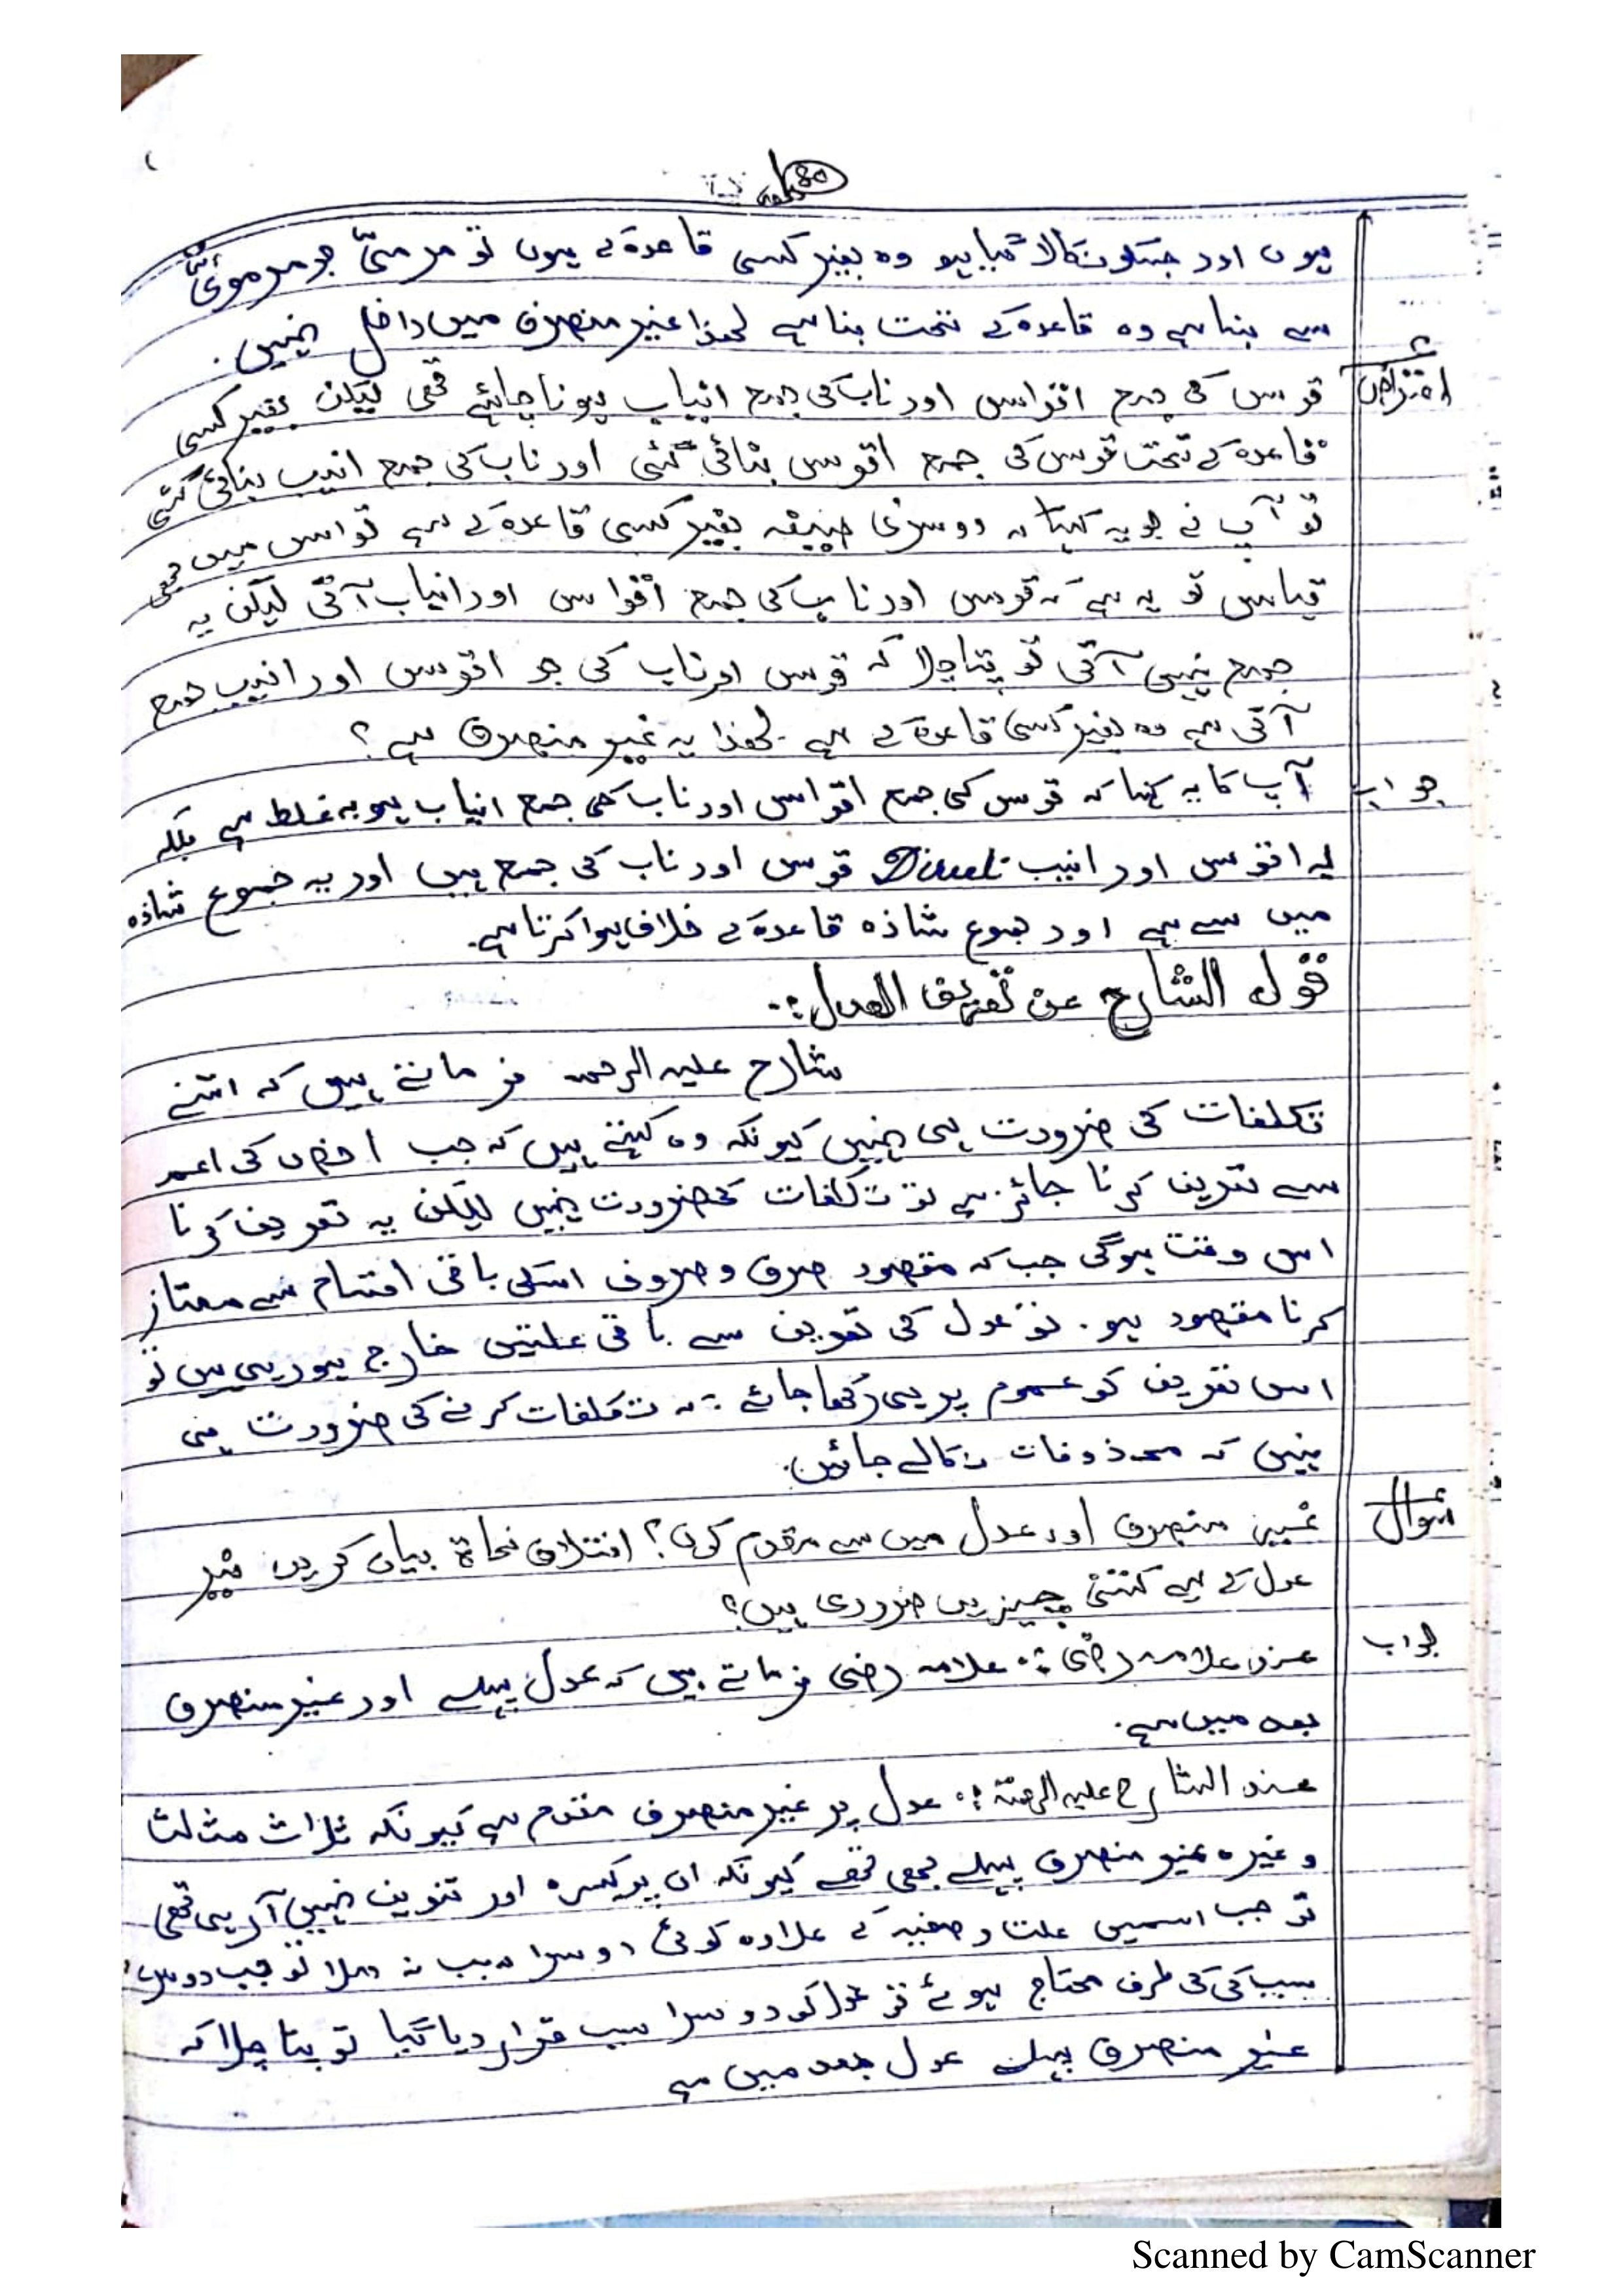 80
ہوں اور جسکو نکالا گیا ہو وہ بغیر کسی قاعدہ کے ہوں تو مرمیّ جو مرمویٌ
سے بنا ہے وہ قاعدہ کے تحت بنا ہے لھذا غیر منصرف میں داخل نہیں.
اعتراض
قوس کی جمع اقواس اور ناب کی جمع انیاب ہونا چاہئے تھی لیکن بغیر کسی
قاعدہ کے تحت قوس کی جمع اقوس بنائی گئی اور ناب کی جمع انیب بنائی گئی
تو آپ نے جو یہ کہا کہ دوسری صیغہ بغیر کسی قاعدہ کے ہے تو اس میں بھی
قیاس تو یہ ہے کہ قوس اور ناب کی جمع اقواس اور انیاب آتی لیکن یہ
جمع نہیں آتی تو پتا چلا کہ قوس اور ناب کی جو اقوس اور انیب جمع
آتی ہے وہ بغیر کسی قاعدہ کے ہے. لھذا یہ غیر منصرف ہے؟
جواب
آپ کا یہ کہنا کہ قوس کی جمع اقواس اور ناب کی جمع انیاب ہو یہ غلط ہے بلکہ
یہ اقوس اور انیب Direct قوس اور ناب کی جمع ہیں اور یہ جموع شاذہ
میں سے ہے اور جموع شاذہ قاعدہ کے خلاف ہوا کرتا ہے.
قول الشارح عن تعریف العدل:.
شارح علیہ الرحمہ فرماتے ہیں کہ اتنے
تکلفات کی ضرورت ہی نہیں کیونکہ وہ کہتے ہیں کہ جب اخص کی اعم
سے تعریف کرنا جائز ہے تو تکلفات کی ضرورت نہیں لیکن یہ تعریف کرنا
اس وقت ہوگی جب کہ مقصود صرف و صرف اسکی باقی اقسام سے ممتاز
کرنا مقصود ہو. تو عدل کی تعریف سے باقی علتیں خارج ہو رہی ہیں تو
اس تعریف کو عموم پر ہی رکھا جائے نہ کہ تکلفات کرنے کی ضرورت ہی
نہیں کہ محذوفات نکالے جائیں.
سوال
غیر منصرف اور عدل میں سے مقدم کون؟ اختلاف نحاة بیان کریں نیز
عدل کے لیے کتنی چیزیں ضروری ہیں؟
جواب
عند علامہ رضی:. علامہ رضی فرماتے ہیں کہ عدل پہلے اور غیر منصرف
بعد میں ہے.
عند الشارح علیہ الرحمة:. عدل پر غیر منصرف مقدم ہے کیونکہ ثلاث مثلث
وغیرہ غیر منصرف پہلے بھی تھے کیونکہ ان پر کسرہ اور تنوین نہیں آرہی تھی
تو جب اسمیں علت وصفیہ کے علاوہ کوئی دوسرا سبب نہ ملا تو جب دوسرا
سبب کی کی طرف محتاج ہوئے تو عدل کو دوسرا سبب قرار دیا گیا تو پتا چلا کہ
غیر منصرف پہلے عدل بعد میں ہے
Scanned by CamScanner